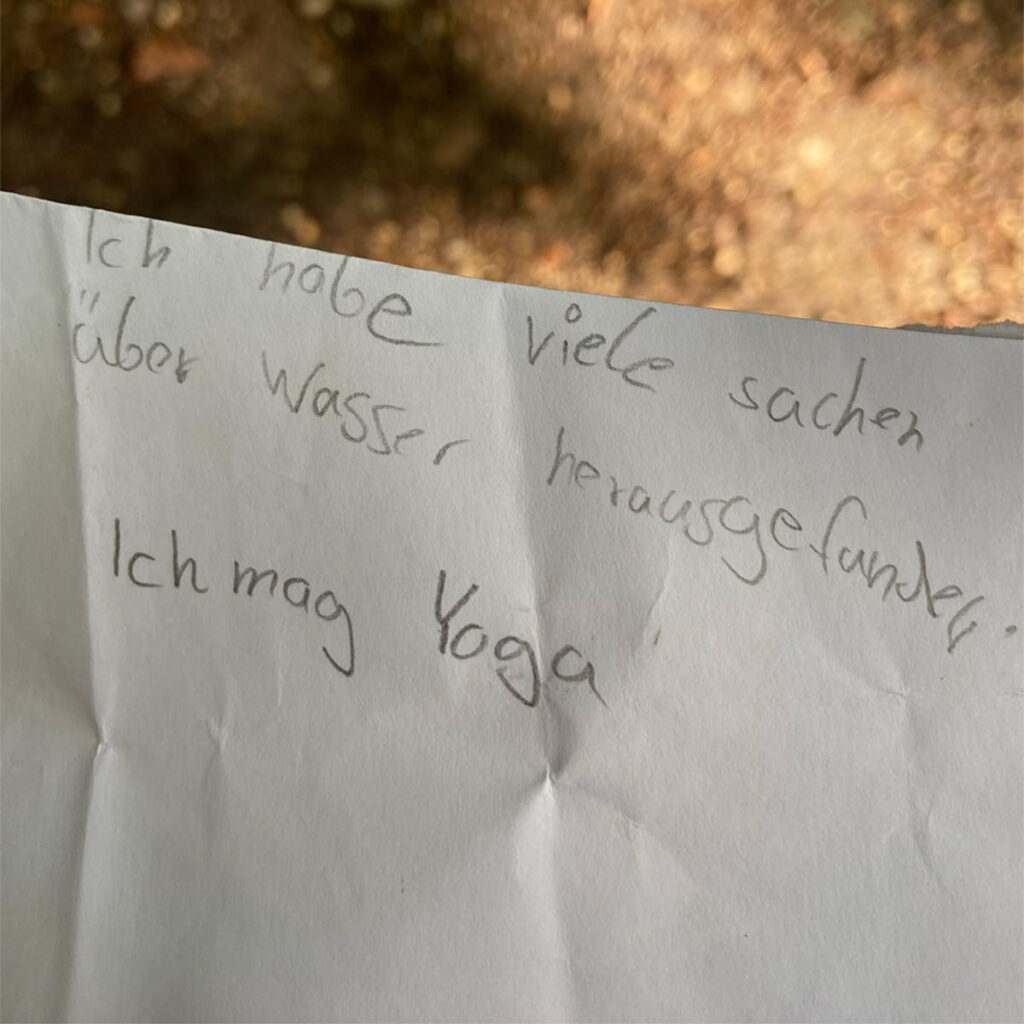 Ich habe viele sachen
über Wasser herausgefunden.
Ich mag Yoga